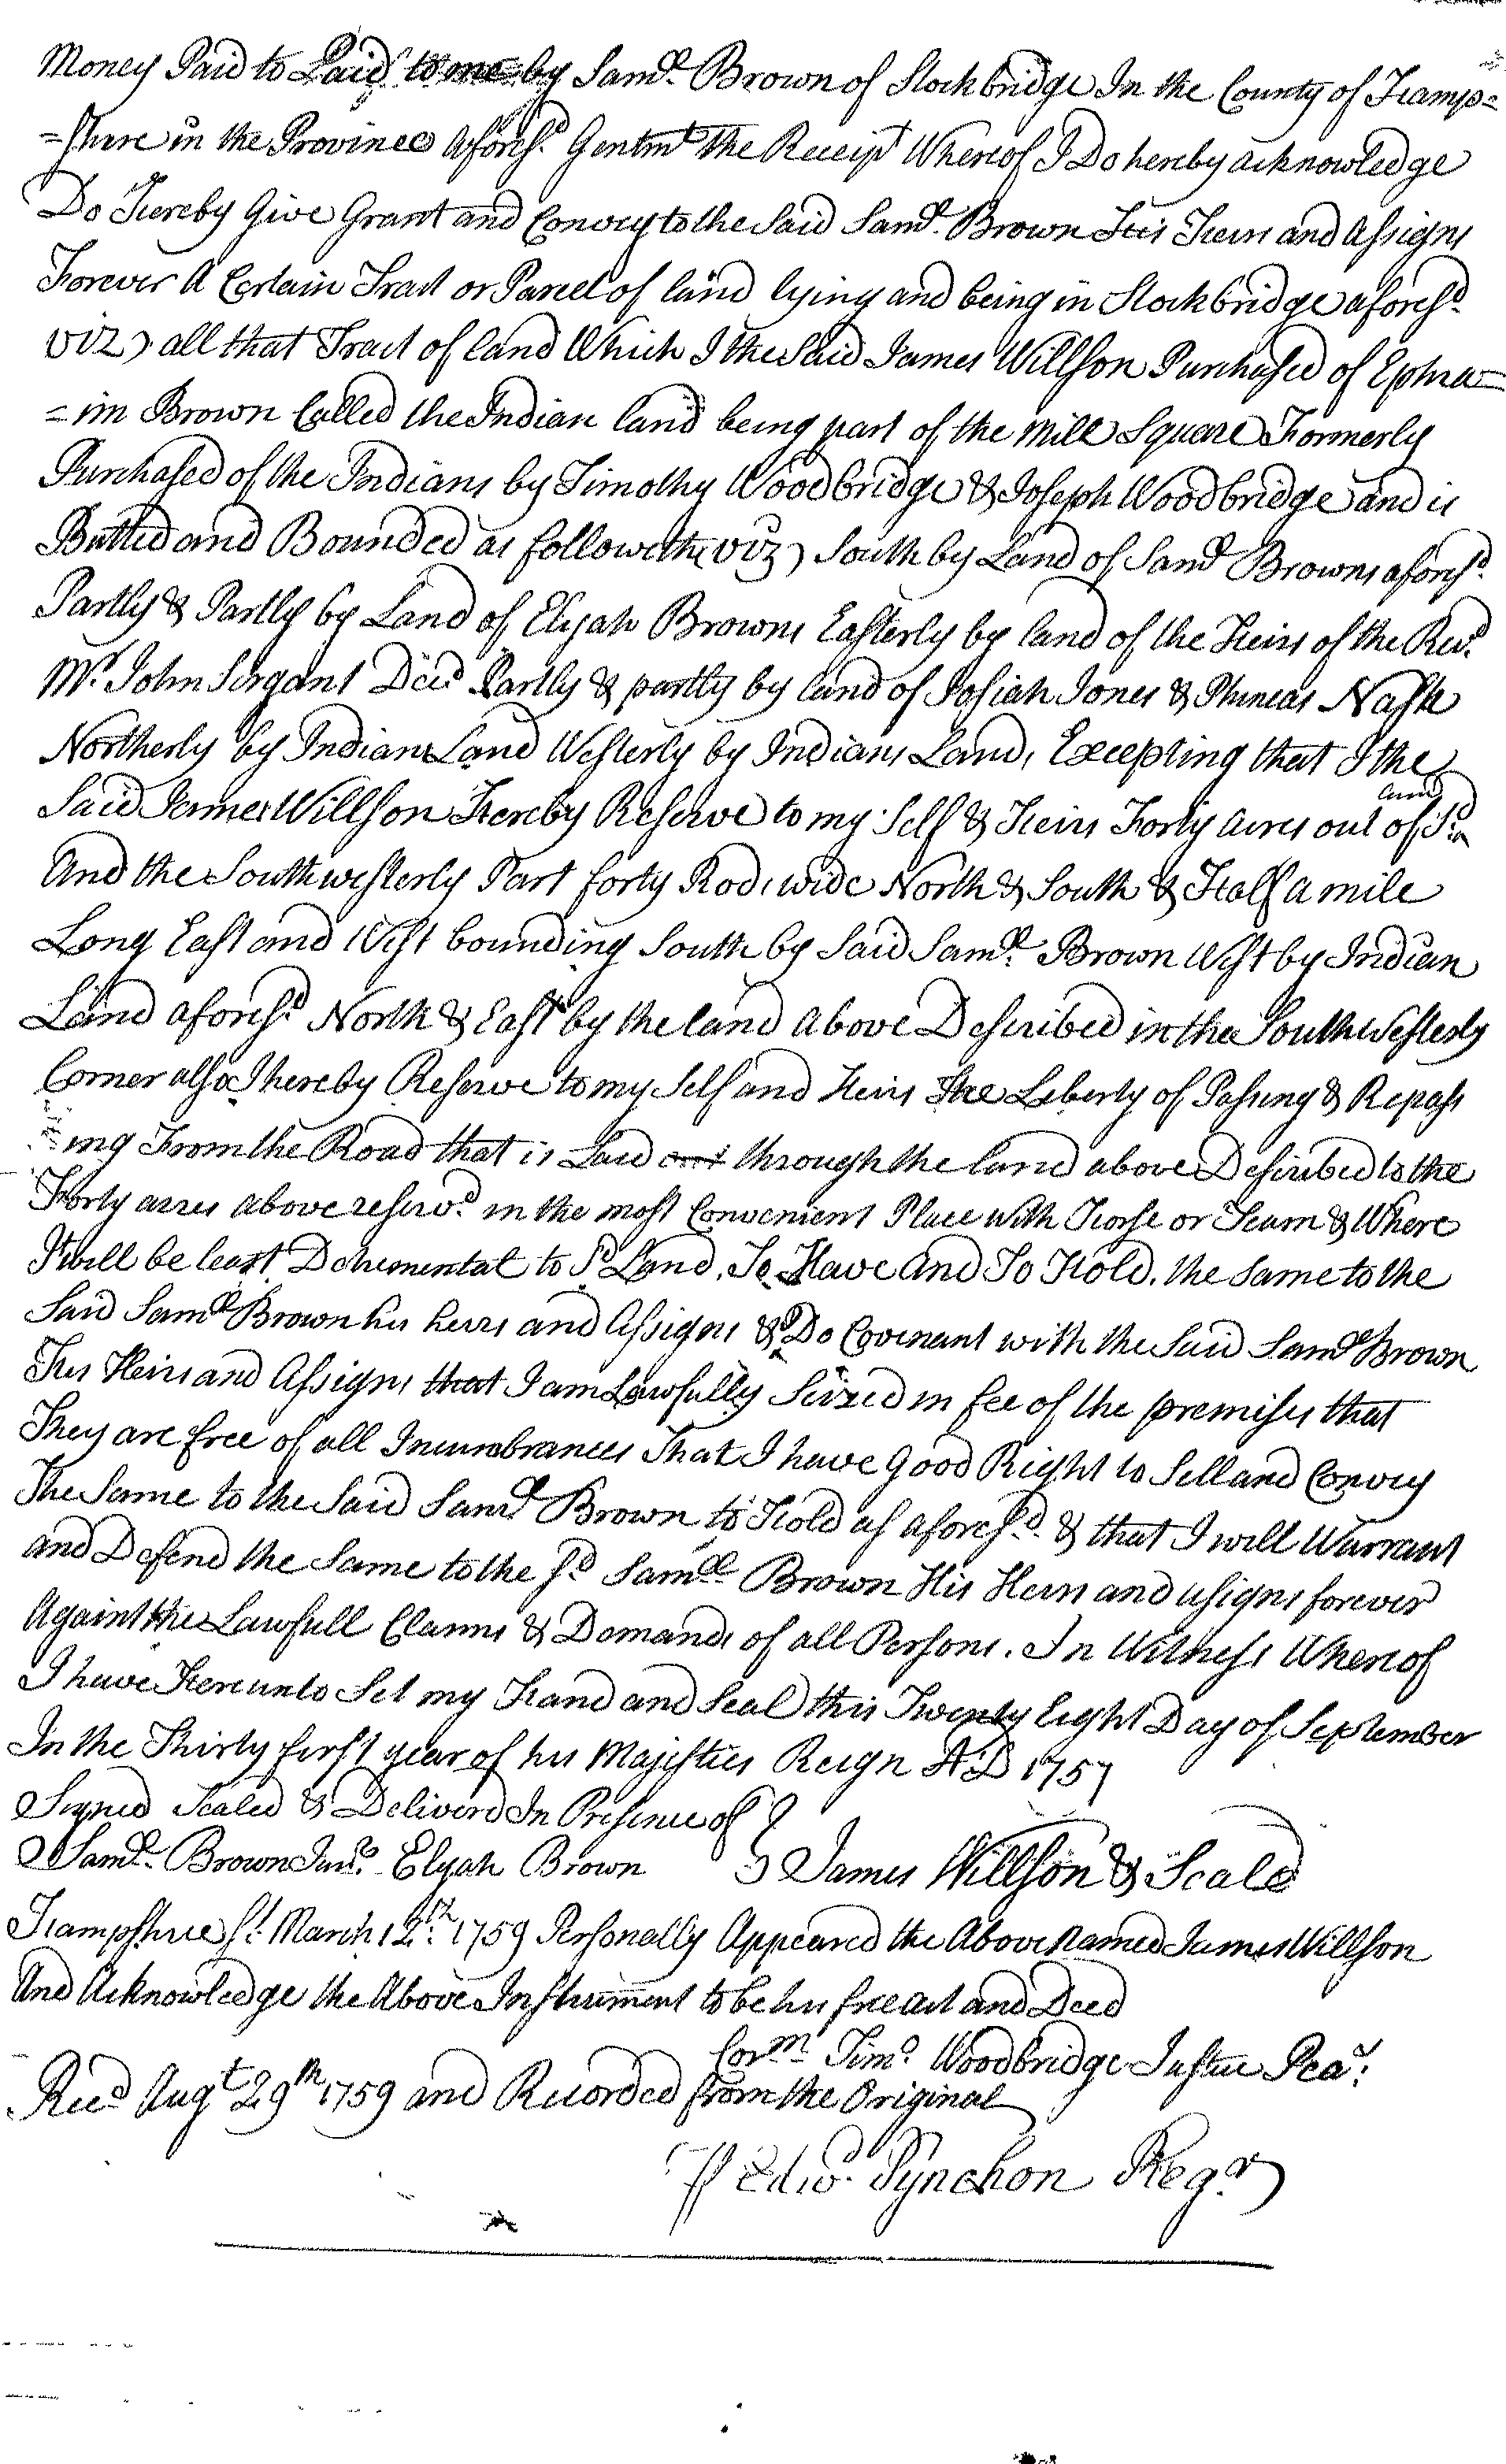 Money Paid to Paid to me by Samll Brown of Stockbridge In the County of Hamp=
=shire in the Province aforesd Gentm the Receipt Whereof I Do hereby acknowledge
Do Hereby Give Grant and Convey to the Said Samll Brown His Heirs and Assigns
Forever A Certain Tract or Parcel of land lying and being in Stockbridge aforesd
viz) all that Tract of land Which I the Said James Willson Purchased of Ephra=
=im Brown Called the Indian land being part of the Mill Square Formerly
Purchased of the Indians by Timothy Woodbridge & Joseph Woodbridge and is
Butted and Bounded as followeth (viz) South by Land of Samll Browns aforesd
Partly & Partly by Land of Elijah Browns Easterly by land of the Heirs of the Revd
Mr John Sergant Decd Partly & partly by land of Josiah Jones & Phineas Nash
Northerly by Indians Land Westerly by Indians Land, Excepting that I the
Said James Willson Hereby Reserve to my Self & Heirs Forty acres out of Sd land
And the Southwesterly Part forty Rods wide North & South & Half a mile
Long East and West bounding South by Said Samll Brown West by Indian
Land aforesd North & East by the land above Described in the Southwesterly
Corner also I hereby Reserve to my Self and Heirs The Liberty of Passing & Repass
=ing From the Road that is Laid out through the land above Described to the
Forty acres above reservd in the most Convenient Place With Horse or Team & Where
It will be least Detremental to Sd Land. To Have And To Hold. the Same to the
Said Samll Brown his heirs and Assigns & Do Covenant with the Said Samll Brown
His Heirs and Assigns that I am Lawfully Seized in fee of the premises that
They are free of all Incumbrances That I have Good Right to Sell and Convey
The Same to the Said Samll Brown to Hold as aforesd & that I will Warrant
and Defend the Same to the Sd Samll Brown His Heirs and asigns forever
Against the Lawfull Claims & Demands of all Persons. In Witness Whereof
I have Hereunto Set my Hand and Seal this Twenty Eight Day of September
In the Thirty first year of his Majesties Reign AD 1757
Signed Sealed & Deliverd In Presence of
Samll Brown Junr Elijah Brown James Willson & Seale
Hampshire Ss March 12th 1759 Personally Appeared the Above Named James Willson
And Acknowledge the Above Instrument to be his free act and Deed
Corm Timo Woodbridge Justice Peas:
Recd Augt 29th 1759 and Recorded from the Original
P Edwd Pynchon Regr